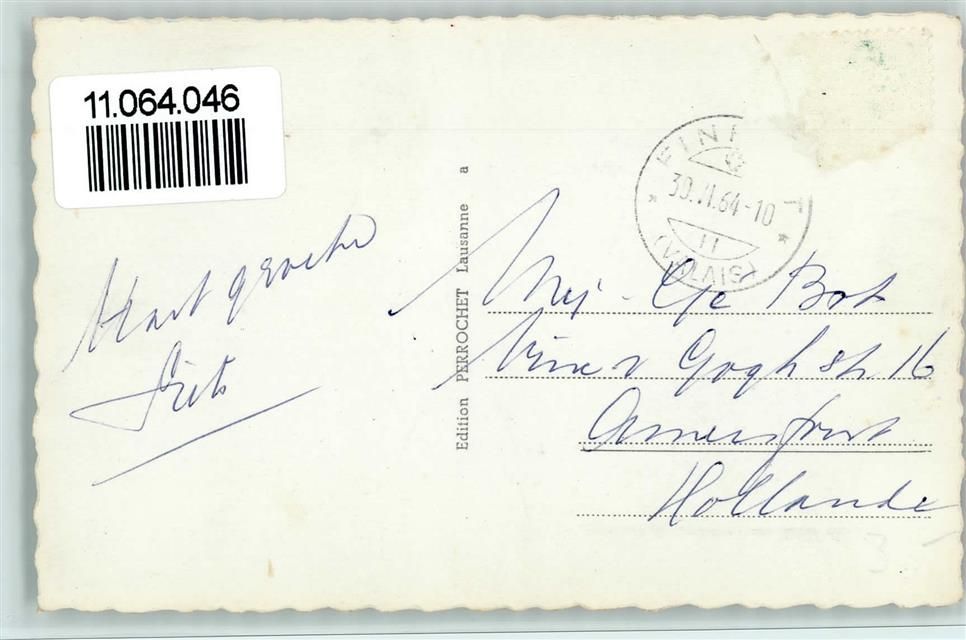 11.064.046
Hart groeten
Piet
Edition PERROCHET Lausanne a
30.VI.64-10
11
(VALAIS)
Mej. Bot
Vinc v Gogh str 16
Amersfoort
Hollande